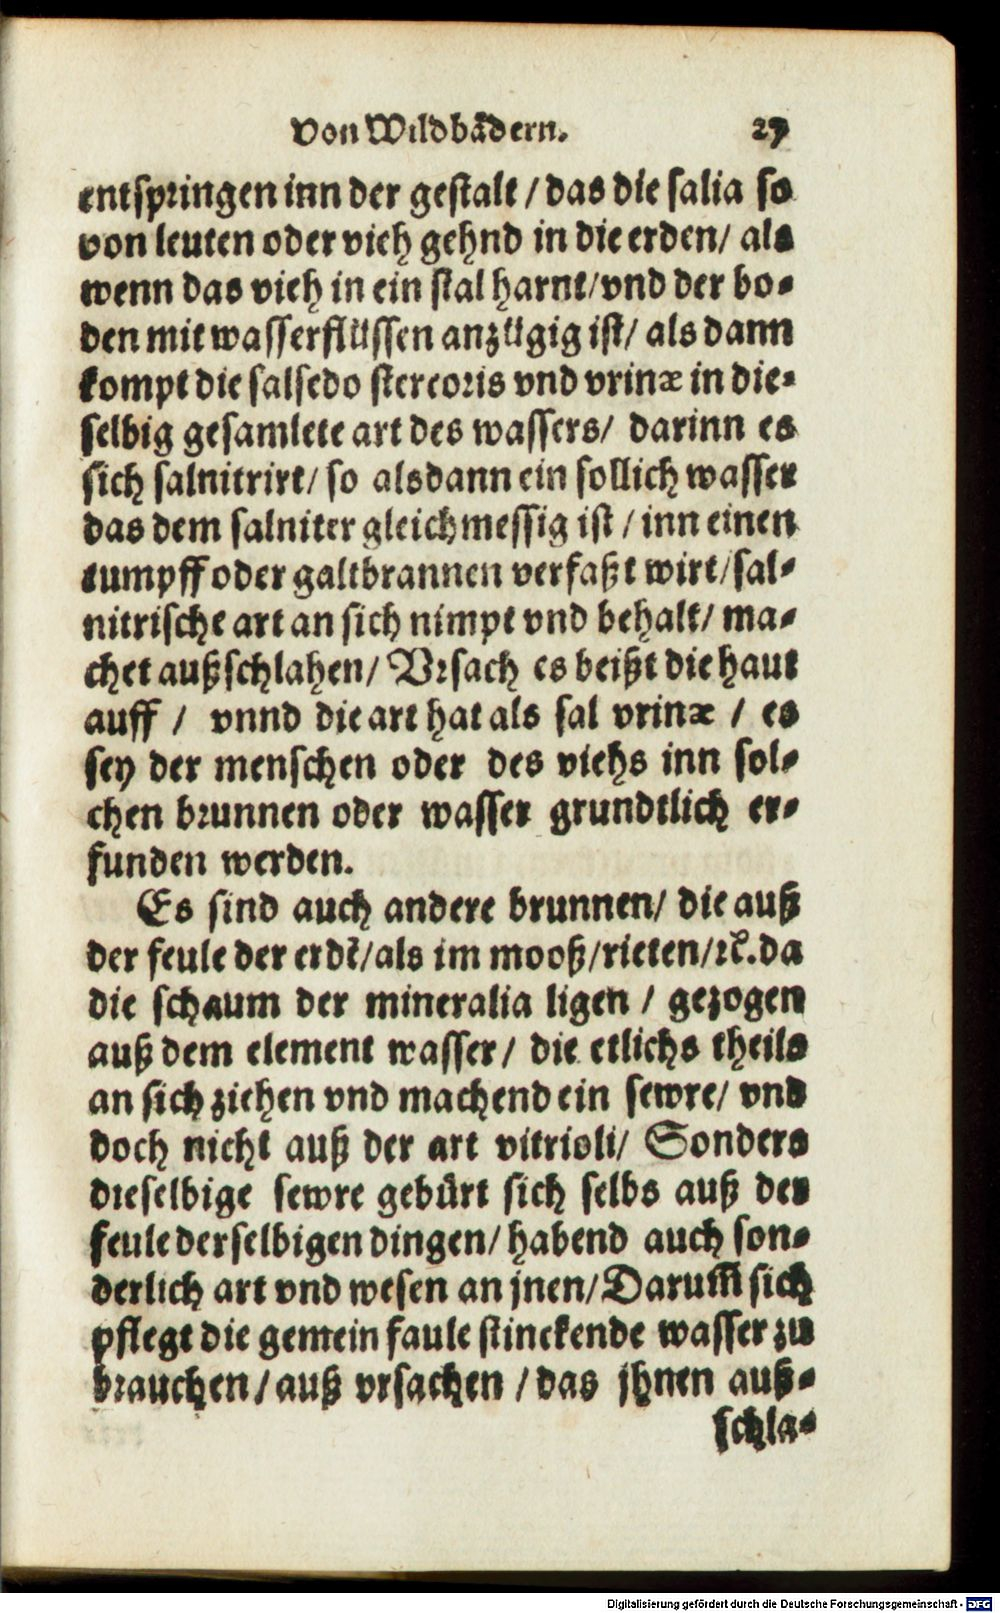 Von Wildbädern. 27
entspringen inn der gestalt / das die salia so
von leuten oder vieh gehnd in die erden/ als
wenn das vieh in ein stal harnt/vnd der bo-
den mit wasserflüssen anzügig ist/ als dann
kompt die salsedo stercoris vnd vrinæ in die-
selbig gesamlete art des wassers/ darinn es
sich salnitrirt/ so alsdann ein sollich wasser
das dem salniter gleichmessig ist / inn einen
sumpff oder galtbrannen verfaßt wirt/sal-
nitrische art an sich nimpt vnd behalt/ ma-
chet außschlahen/ Vrsach es beißt die haut
auff / vnnd die art hat als sal vrinæ / es
sey der menschen oder des viehs inn sol-
chen brunnen oder wasser grundtlich er-
funden werden.
Es sind auch andere brunnen/ die auß
der feule der erdē/als im mooß/rieten/ꝛc. da
die schaum der mineralia ligen / gezogen
auß dem element wasser/ die etlichs theils
an sich ziehen vnd machend ein sewre/ vnd
doch nicht auß der art vitrioli/ Sonders
dieselbige sewre gebürt sich selbs auß der
feule derselbigen dingen/ habend auch son-
derlich art vnd wesen an jnen/ Darum̃ sich
pflegt die gemein faule stinckende wasser zu
brauchen / auß vrsachen / das jhnen auß-
schla-
Digitalisierung gefördert durch die Deutsche Forschungsgemeinschaft - DFG